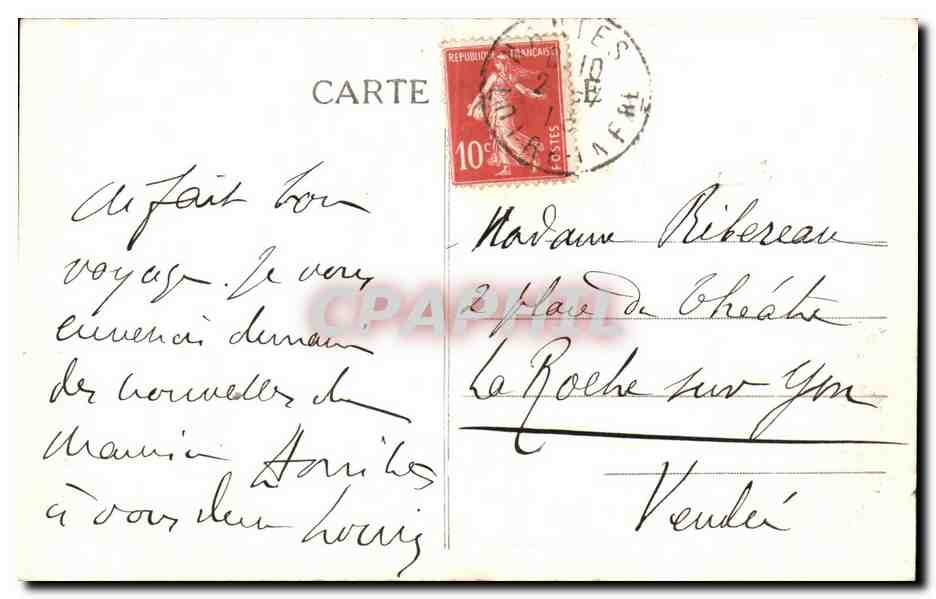 CARTE
RÉPUBLIQUE FRANÇAISE
10c
POSTES
fait bon
voyage. Je vous
enverrai demain
des nouvelles de
à vous deux Louis
Madame Ribereau
2 place du théâtre
La Roche sur Yon
Vendée
CPAPHIL